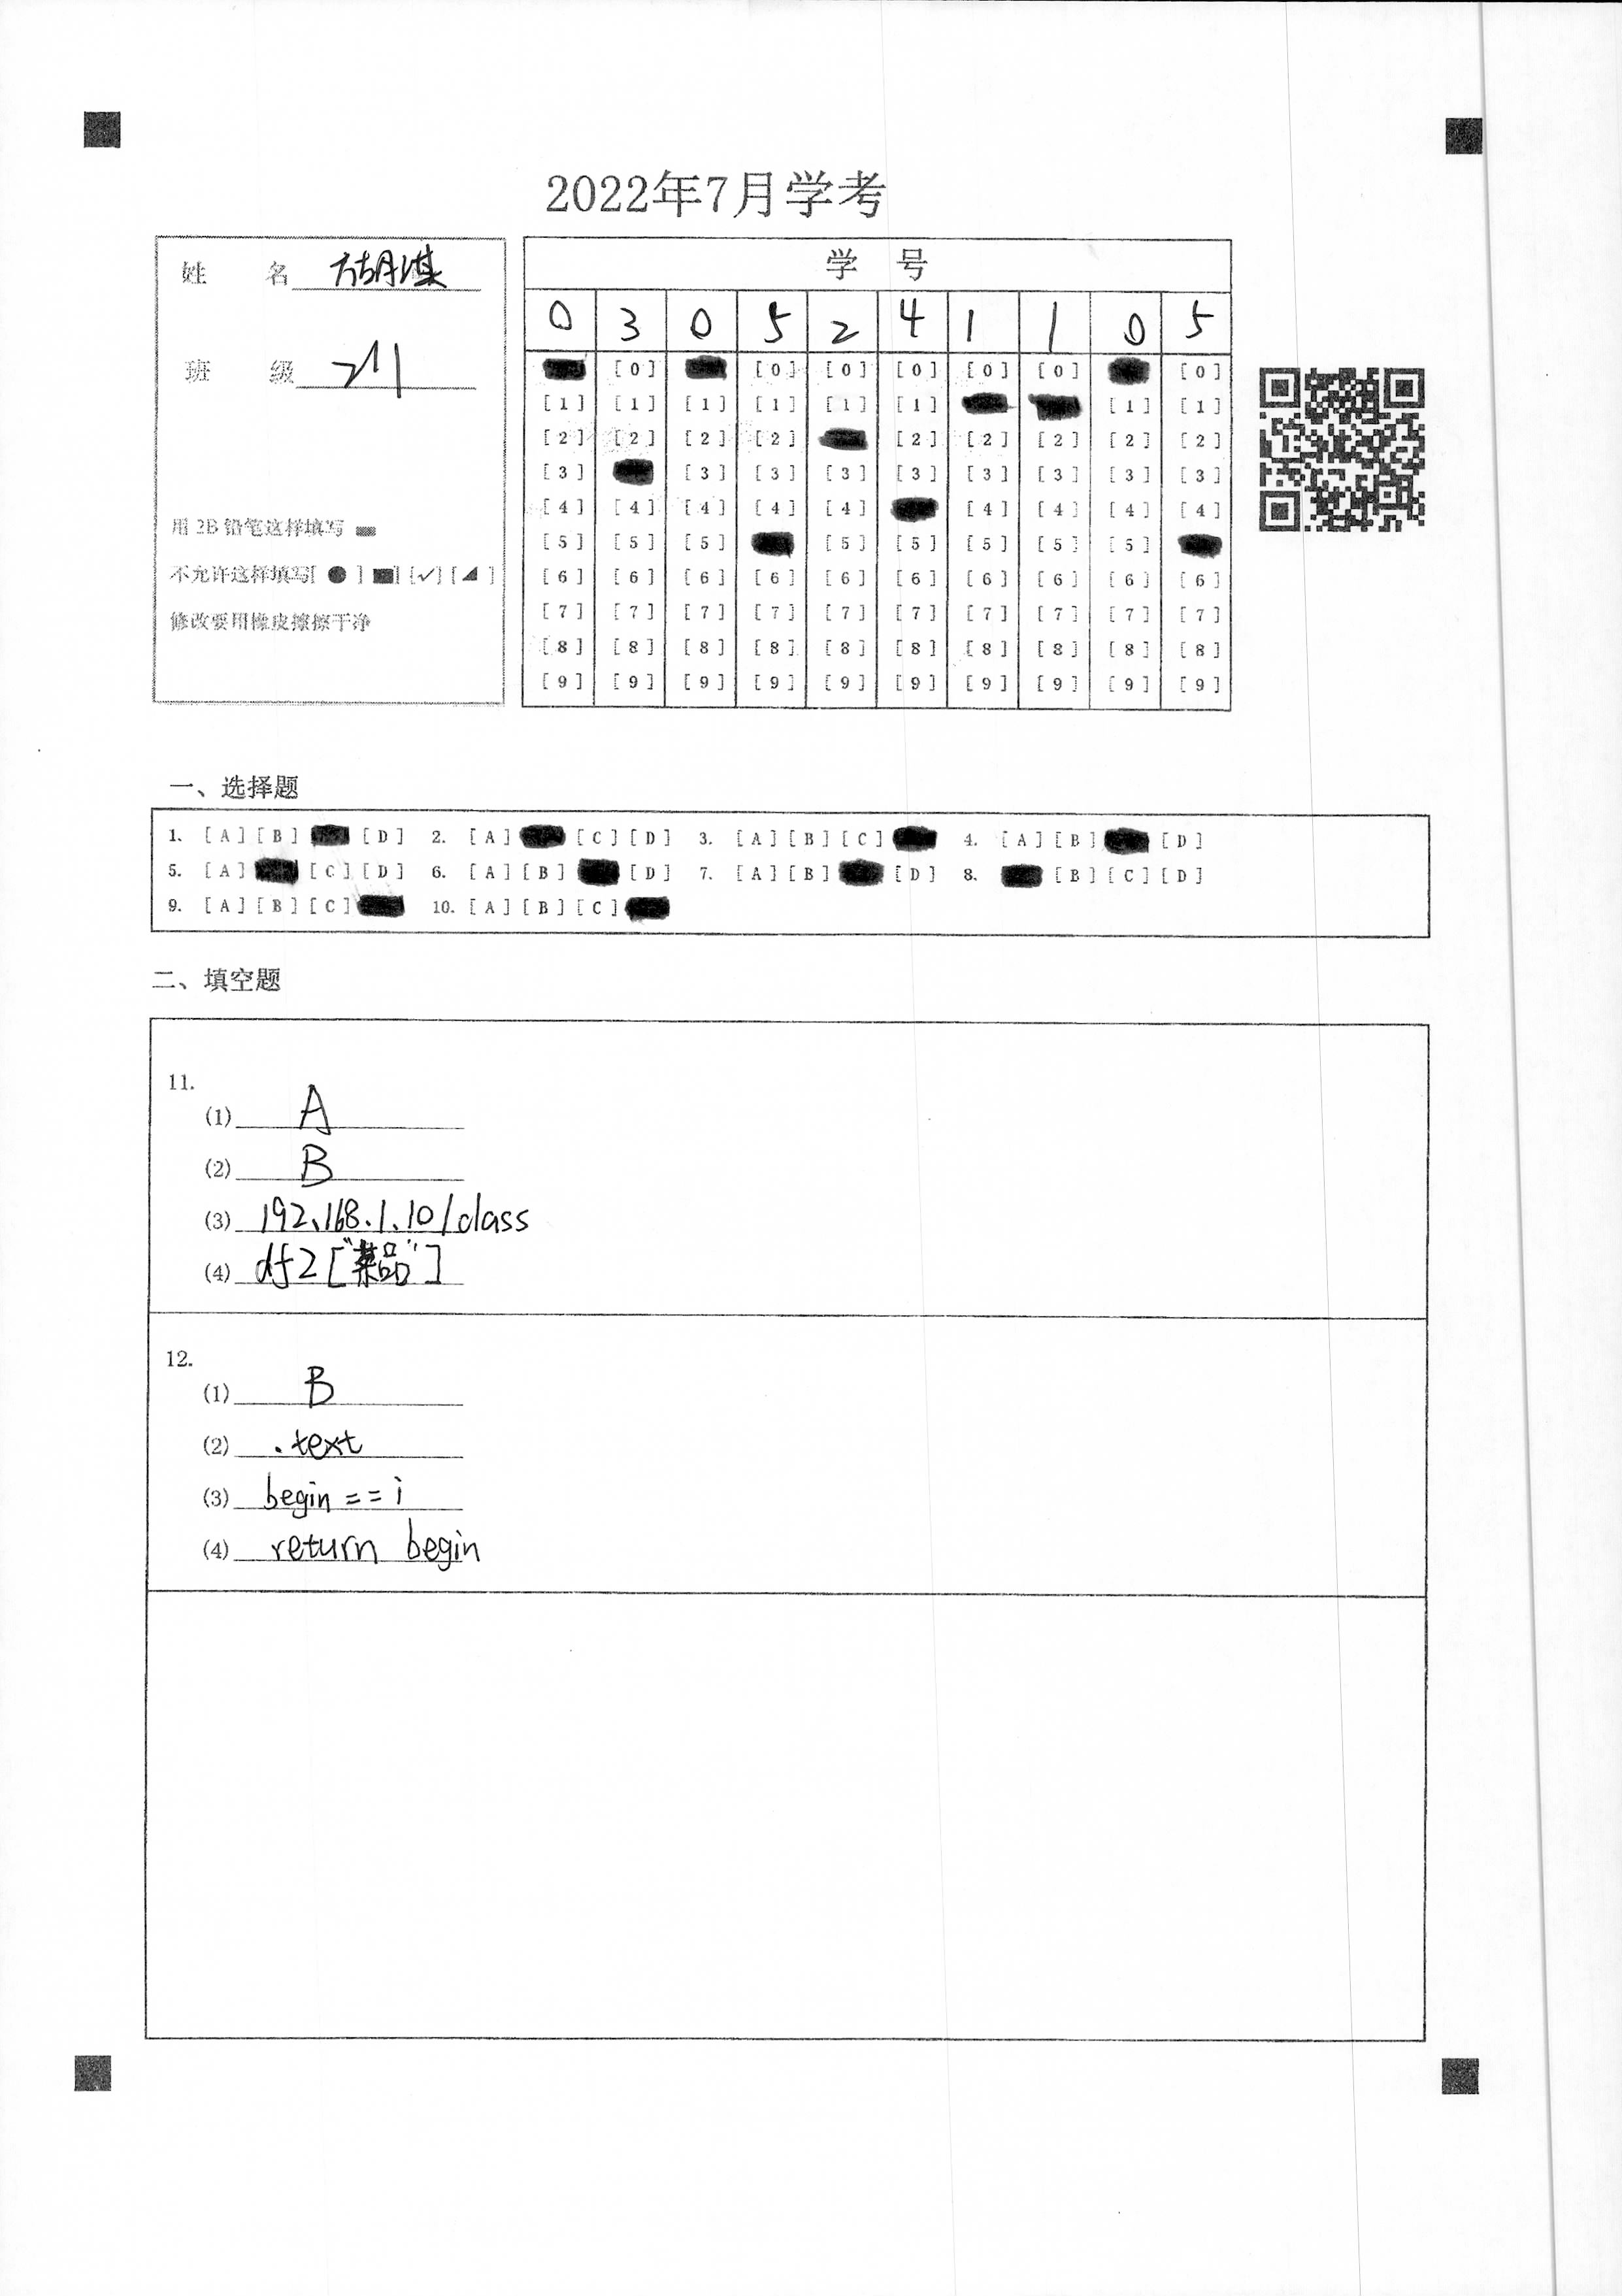 2022年7月学考
姓 名 胡淇
班 级 211
用2B铅笔这样填写
不允许这样填写[ ● ] ■] [✓] [◢ ]
修改要用橡皮擦擦干净
学 号
0 3 0 5 2 4 1 1 0 5
[0] [0] [0] [0] [0] [0] [0]
[1] [1] [1] [1] [1] [1] [1] [1]
[2] [2] [2] [2] [2] [2] [2] [2] [2]
[3] [3] [3] [3] [3] [3] [3] [3] [3]
[4] [4] [4] [4] [4] [4] [4] [4] [4]
[5] [5] [5] [5] [5] [5] [5] [5]
[6] [6] [6] [6] [6] [6] [6] [6] [6] [6]
[7] [7] [7] [7] [7] [7] [7] [7] [7] [7]
[8] [8] [8] [8] [8] [8] [8] [8] [8] [8]
[9] [9] [9] [9] [9] [9] [9] [9] [9] [9]
一、选择题
1. [A] [B] [D] 2. [A] [C] [D] 3. [A] [B] [C] 4. [A] [B] [D]
5. [A] [C] [D] 6. [A] [B] [D] 7. [A] [B] [D] 8. [B] [C] [D]
9. [A] [B] [C] 10. [A] [B] [C]
二、填空题
11.
(1) A
(2) B
(3) 192.168.1.10/class
(4) df2["菜品"]
12.
(1) B
(2) .text
(3) begin==i
(4) return begin